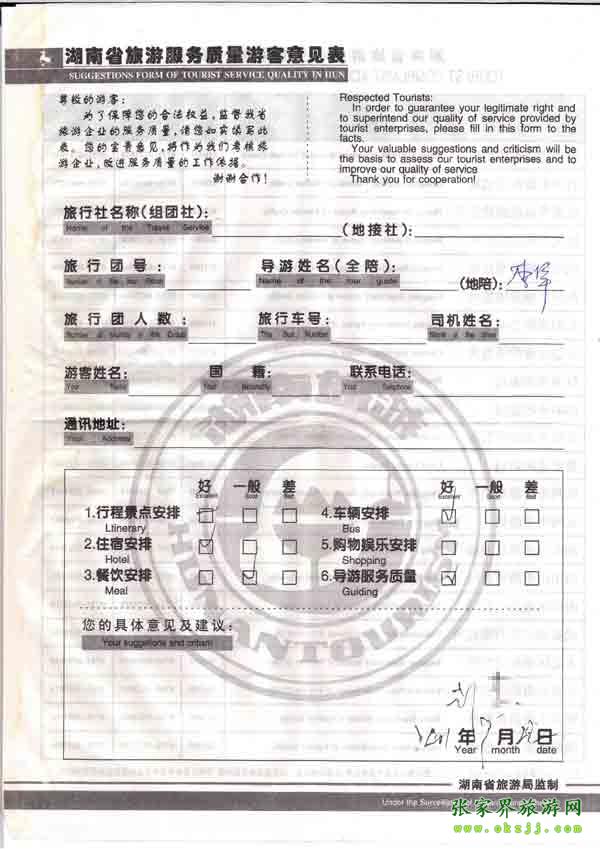 湖南省旅游服务质量游客意见表
SUGGESTIONS FORM OF TOURIST SERVICE QUALITY IN HUN
尊敬的游客：
为了保障您的合法权益，监督我省
旅游企业的服务质量，请您如实填写此
表。您的宝贵意见，将作为我们考核旅
游企业，改进服务质量的工作依据。
谢谢合作！
Respected Tourists:
In order to guarantee your legitimate right and
to superintend our quality of service provided by
tourist enterprises, please fill in this form to the
facts.
Your valuable suggestions and criticism will be
the basis to assess our tourist enterprises and to
improve our quality of service
Thank you for cooperation!
旅行社名称(组团社)：
Name of the Travel Service
(地接社)：
旅行团号：
导游姓名(全陪)：
Name of the tour guide
(地陪)：
旅行团人数：
旅行车号：
The Bus Number
司机姓名：
游客姓名：
Your Name
国籍：
Your Nationality
联系电话：
Your Telephone
通讯地址：
Your Address
好 一般 差 好 一般 差
Excellent Good Bad Excellent Good Bad
1.行程景点安排 4.车辆安排
Ltinerary Bus
2.住宿安排 5.购物娱乐安排
Hotel Shopping
3.餐饮安排 6.导游服务质量
Meal Guiding
您的具体意见及建议：
Your suggetions and critism
年 月 日
Year month date
湖南旅游
HUNAN TOURISM
湖南省旅游局监制
Under the Surveillance of
张家界旅游网
www.okzjj.com